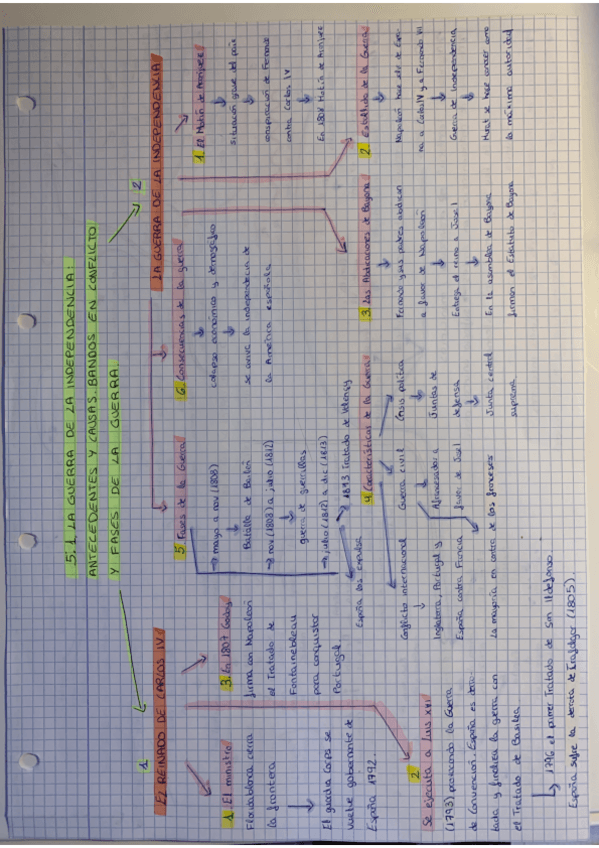 5.1. LA GUERRA DE LA INDEPENDENCIA:
ANTECEDENTES Y CAUSAS. BANDOS EN CONFLICTO
Y FASES DE LA GUERRA.
1
EL REINADO DE CARLOS IV:
1. El ministro
Floridablanca cierra
la frontera
El guardia Corps se
vuelve gobernante de
España 1792.
2
Se ejecuta a Luis XVI
(1793) provocando la Guerra
de Convención. España es derro-
tada y finaliza la guerra con
el Tratado de Basilea
↳ 1796 el primer Tratado de San Ildefonso
España sufre la derrota de Trafalgar (1805).
3. En 1807 Godoy
firma con Napoleón
el Tratado de
Fontainebleau
para conquistar
Portugal
2
LA GUERRA DE LA INDEPENDENCIA
1. El Motín de Aranjuez
Situación grave del país
conspiración de Fernando
contra Carlos IV
En 1808 Motín de Aranjuez
2. Estallido de la Guerra
Napoleón hace
a Carlos IV y a Fernando VII
Guerra de Independencia
Murat se hace conocer como
la máxima autoridad
3. Las Abdicaciones de Bayona
Fernando y sus padres abdican
a favor de Napoleón
Entrega el reino a José I
En la asamblea de Bayona
firman el Estatuto de Bayona
4. Características de la Guerra
Conflicto internacional
Inglaterra, Portugal y
España contra Francia
Guerra civil
Afrancesados a
favor de José I
La mayoría en contra de los franceses
Crisis política
Juntas de
defensa
Junta central
suprema
5. Fases de la Guerra
→ mayo a nov (1808)
Batalla de Bailén
→ nov (1808) a julio (1812)
guerra de guerrillas
→ julio (1812) a dic (1813)
→ 1813 Tratado de Valençay
6. Consecuencias de la guerra
colapso económico y demográfico
se inicia la independencia de
la América española